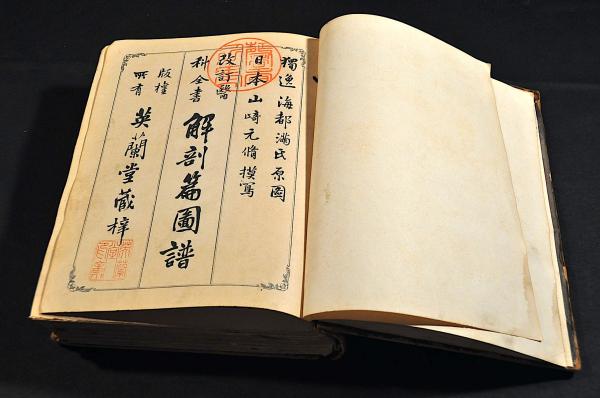 獨逸 海都満氏原圖
日本 山﨑元脩模寫
改訂醫
科全書
解剖篇圖譜
版權
所有
英蘭堂蔵梓